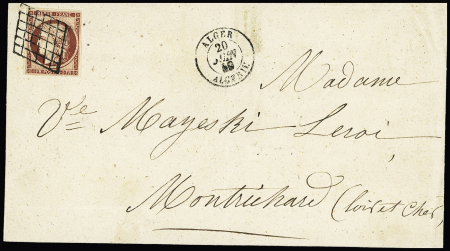 REPUB. FRANC.
ALGER
20
ALGERIE
Madame
Vve Mayeski Leroi,
Montrichard (loir et Cher)